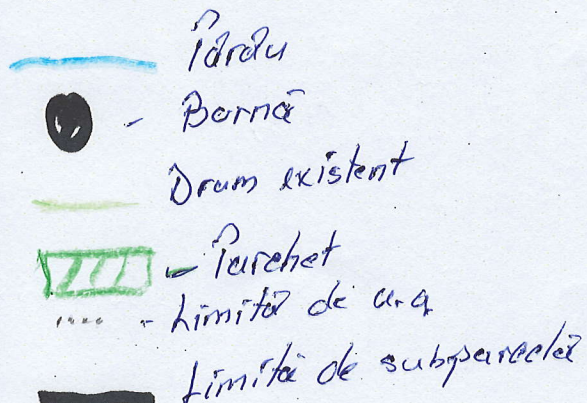 Pârâu
Bornă
Drum existent
Parchet
Limită de u.a
Limită de subparcelă